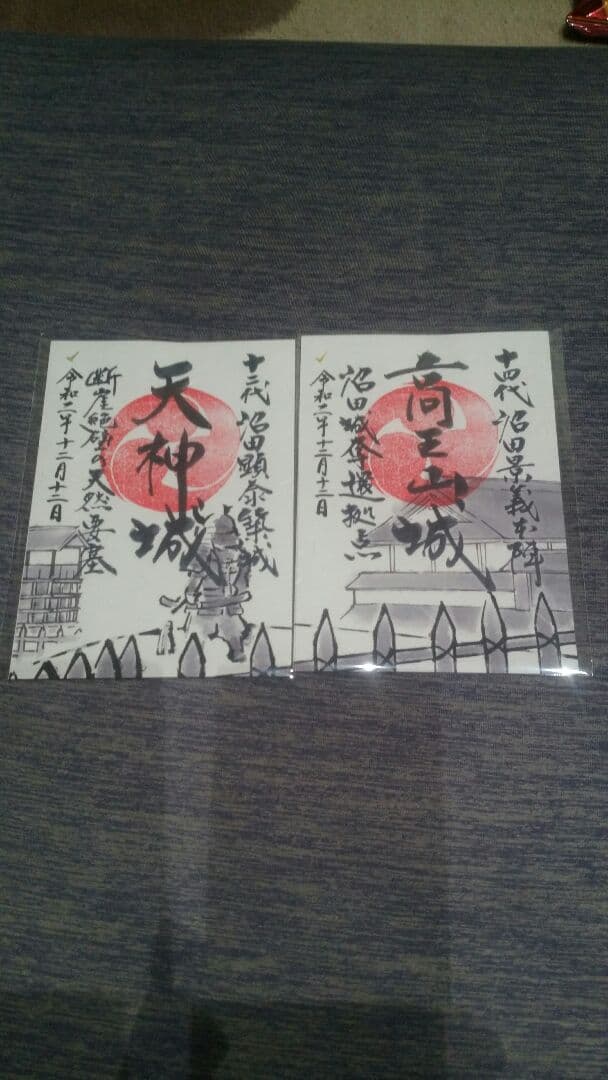 十四代沼田景義本陣
高王山城
沼田城奪還拠点
令和二年十二月十三日
十三代沼田顕泰築城
天神城
断崖絶壁の天然要塞
令和二年十二月十二日